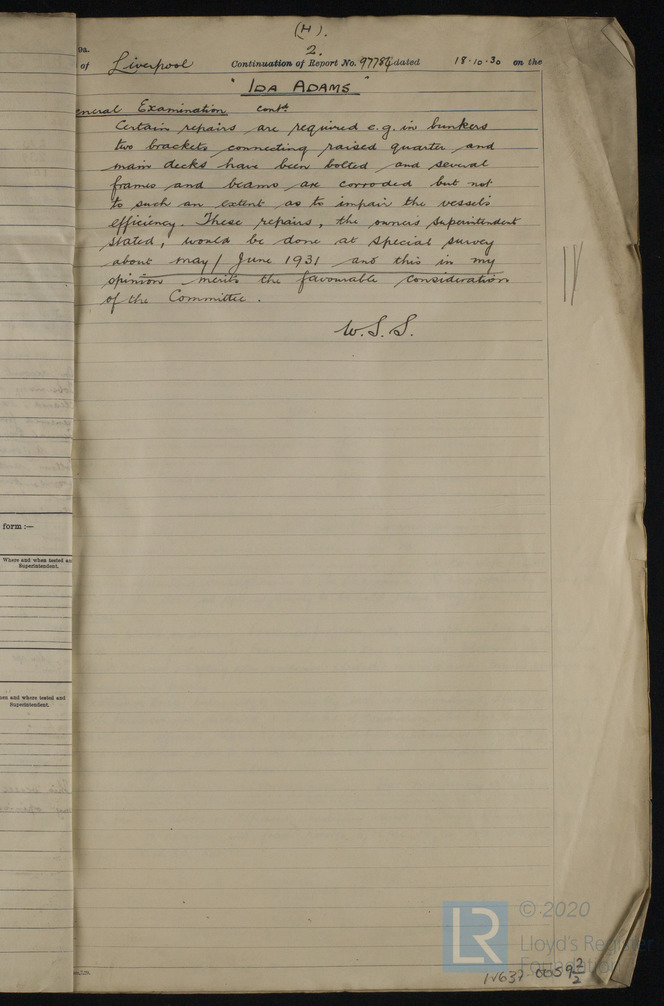 (H).
2.
9a.
of Liverpool Continuation of Report No. 97784 dated 18·10·30 on the
"IDA ADAMS"
eneral Examination contd
Certain repairs are required e.g. in bunkers
two brackets connecting raised quarter and
main decks have been bolted and several
frames and beams are corroded but not
to such an extent as to impair the vessel's
efficiency. These repairs, the owner's Superintendent
stated, would be done at Special Survey
about May/June 1931 and this in my
opinion merits the favourable consideration
of the Committee.
W.S.S.
form :—
Where and when tested an
Superintendent.
hen and where tested and
Superintendent.
LR
© 2020
Lloyd's Register
Foundation
LV637-0059 2/2